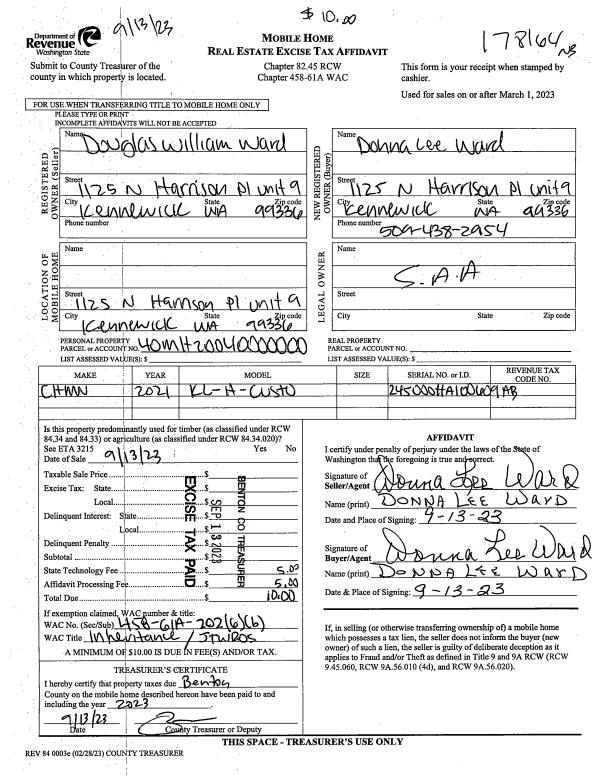 $ 10.00
9/13/23
178164 NB
Department of
Revenue
Washington State
MOBILE HOME
REAL ESTATE EXCISE TAX AFFIDAVIT
Submit to County Treasurer of the
county in which property is located.
Chapter 82.45 RCW
Chapter 458-61A WAC
This form is your receipt when stamped by
cashier.
Used for sales on or after March 1, 2023
FOR USE WHEN TRANSFERRING TITLE TO MOBILE HOME ONLY
PLEASE TYPE OR PRINT
INCOMPLETE AFFIDAVITS WILL NOT BE ACCEPTED
REGISTERED OWNER (Seller)
Name Douglas William Ward
Street 1125 N Harrison Pl unit 9
City Kennewick State WA Zip code 99336
Phone number
NEW REGISTERED OWNER (Buyer)
Name Donna Lee Ward
Street 1125 N Harrison Pl unit 9
City Kennewick State WA Zip code 99336
Phone number 509-438-2954
LOCATION OF MOBILE HOME
Name
Street 1125 N Harrison Pl unit 9
City Kennewick State WA Zip code 99336
LEGAL OWNER
Name S.A.A
Street
City State Zip code
PERSONAL PROPERTY
PARCEL or ACCOUNT NO. 40MH20040000000
LIST ASSESSED VALUE(S): $
REAL PROPERTY
PARCEL or ACCOUNT NO.
LIST ASSESSED VALUE(S): $
MAKE YEAR MODEL SIZE SERIAL NO. or I.D. REVENUE TAX CODE NO.
CHMN 2021 KL-H-CUSTO 245000HA100609AB
Is this property predominantly used for timber (as classified under RCW
84.34 and 84.33) or agriculture (as classified under RCW 84.34.020)?
See ETA 3215 Yes No
Date of Sale 9/13/23
Taxable Sale Price $
Excise Tax: State $
Local $
Delinquent Interest: State $
Local $
Delinquent Penalty $
Subtotal $
State Technology Fee $ 5.00
Affidavit Processing Fee $ 5.00
Total Due $ 10.00
EXCISE TAX PAID
SEP 13 2023
BENTON CO TREASURER
If exemption claimed, WAC number & title:
WAC No. (Sec/Sub) 458-61A-202(6)(b)
WAC Title Inheritance / JTWROS
A MINIMUM OF $10.00 IS DUE IN FEE(S) AND/OR TAX.
TREASURER'S CERTIFICATE
I hereby certify that property taxes due Benton
County on the mobile home described hereon have been paid to and
including the year 2023
9/13/23
Date County Treasurer or Deputy
AFFIDAVIT
I certify under penalty of perjury under the laws of the State of
Washington that the foregoing is true and correct.
Signature of
Seller/Agent Donna Lee Ward
Name (print) DONNA LEE WARD
Date and Place of Signing: 9-13-23
Signature of
Buyer/Agent Donna Lee Ward
Name (print) DONNA LEE WARD
Date & Place of Signing: 9-13-23
If, in selling (or otherwise transferring ownership of) a mobile home
which possesses a tax lien, the seller does not inform the buyer (new
owner) of such a lien, the seller is guilty of deliberate deception as it
applies to Fraud and/or Theft as defined in Title 9 and 9A RCW (RCW
9.45.060, RCW 9A.56.010 (4d), and RCW 9A.56.020).
THIS SPACE - TREASURER'S USE ONLY
REV 84 0003e (02/28/23) COUNTY TREASURER